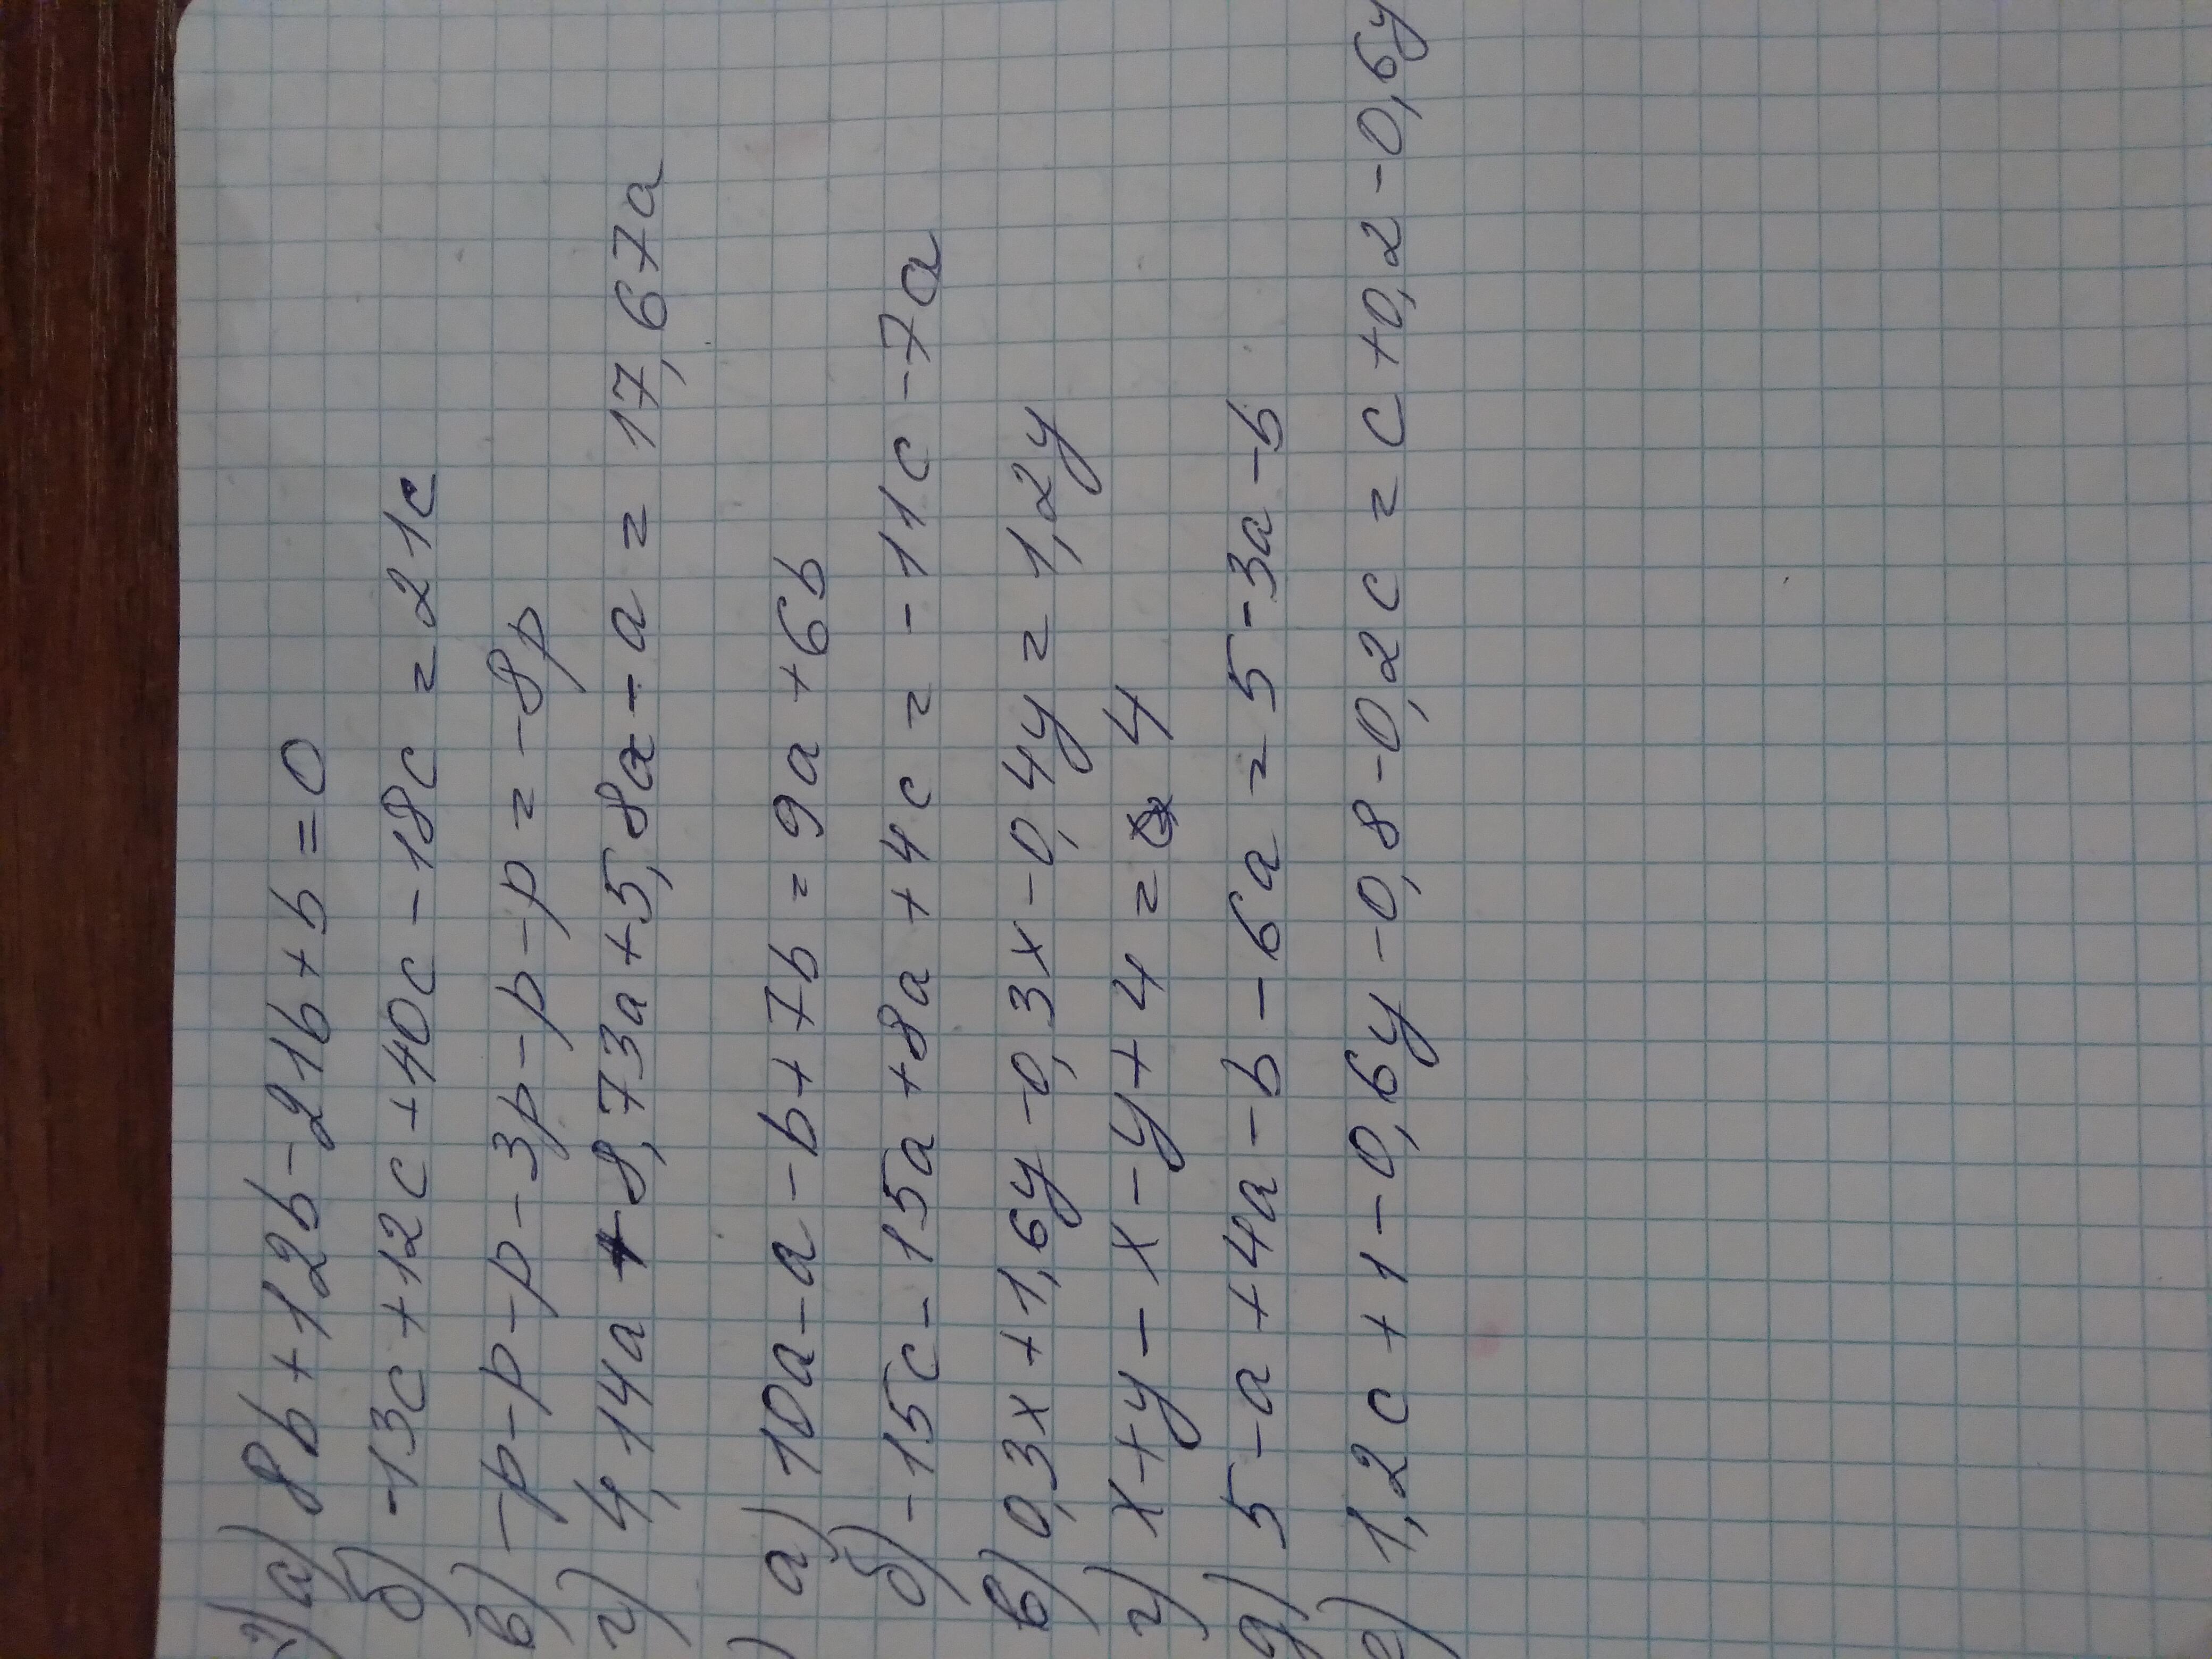 1) а) 8b + 12b - 21b + b = 0
б) -13c + 12c + 40c - 18c = 21c
в) -p - p - p - 3p - p - p = -8p
г) 4,14a + 8,73a + 5,8a - a = 17,67a
) а) 10a - a - b + 7b = 9a + 6b
б) -15c - 15a + 8a + 4c = -11c - 7a
в) 0,3x + 1,6y - 0,3x - 0,4y = 1,2y
г) x + y - x - y + 4 = 4
д) 5 - a + 4a - b - 6a = 5 - 3a - b
е) 1,2c + 1 - 0,6y - 0,8 - 0,2c = c + 0,2 - 0,6y